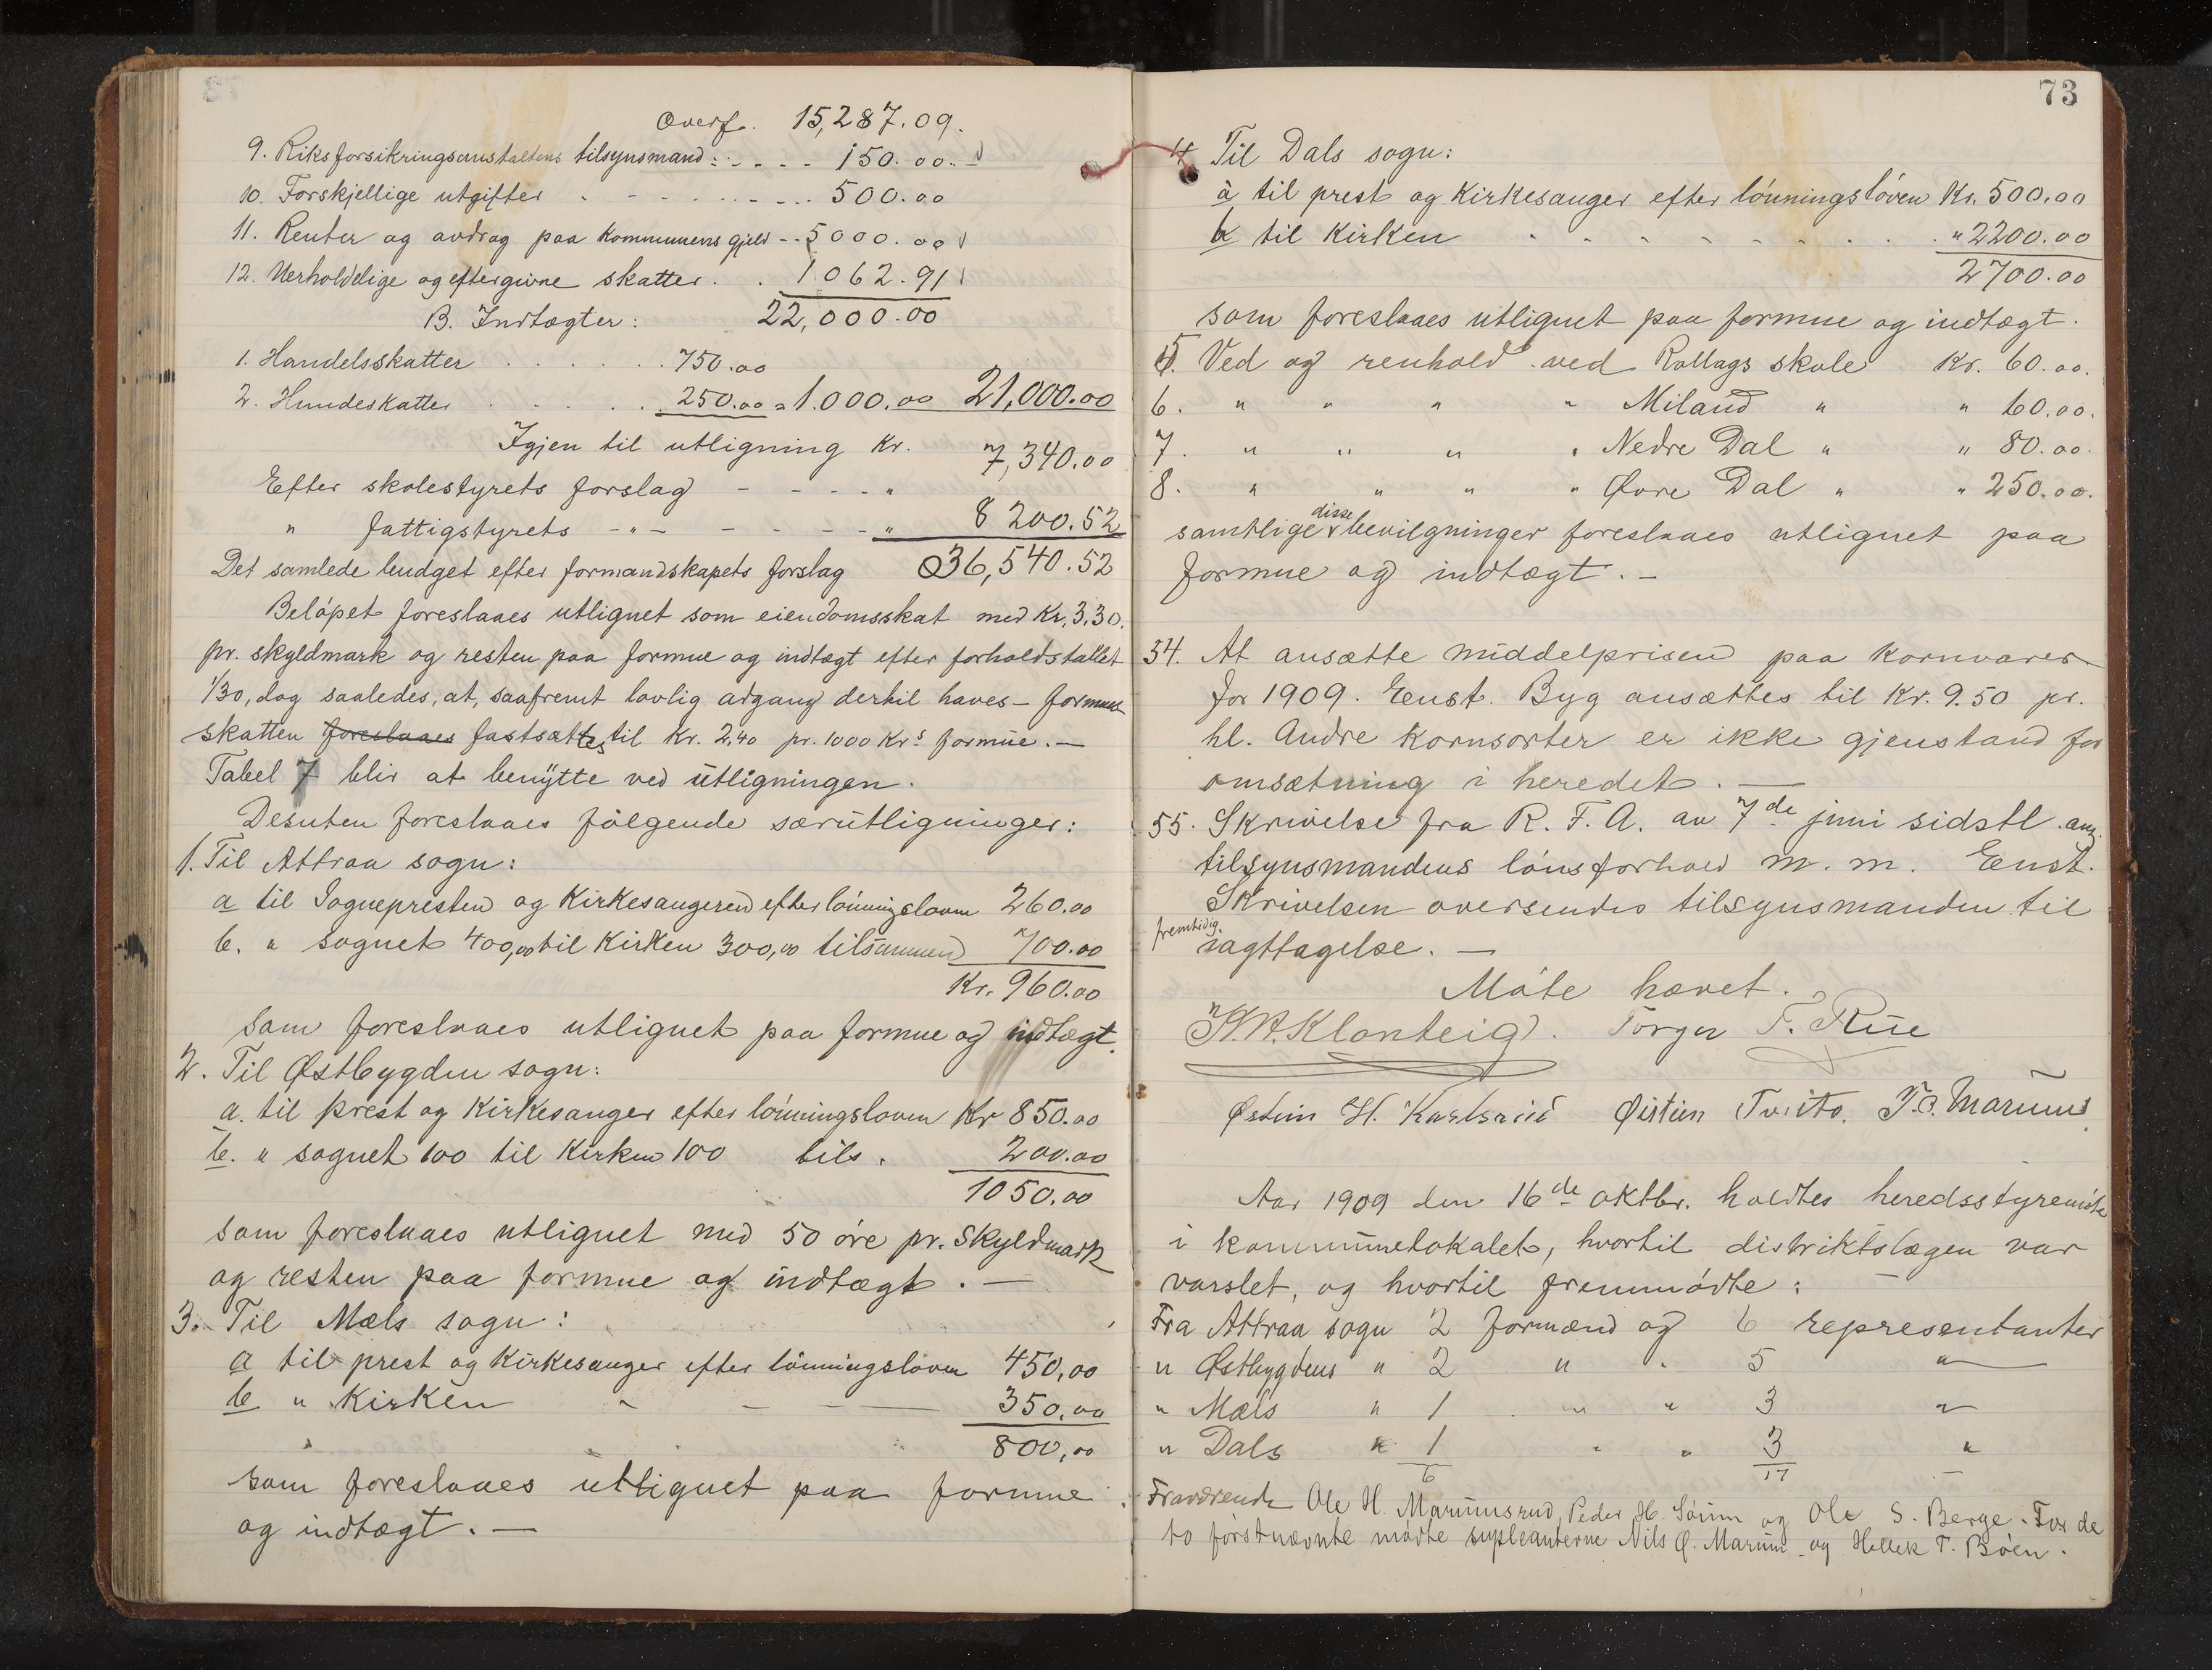 Overf. 15,287.09.
9. Riksforsikringsanstaltens tilsynsmand: - - - - 150.00.
10. Forskjellige utgifter . - - - - - - 500.00
11. Renter og avdrag paa kommunens gjeld - - 5000.00
12. Uerholdelige og eftergivne skatter . . 1062.91
22,000.00
B. Indtægter:
1. Handelsskatter . . . . . . 750.00
2. Hundeskatter . . . . . 250.00 = 1.000.00 21,000.00
Igjen til utligning Kr.
Efter skolestyrets forslag - - - - " 7,340.00
" fattigstyrets - " - - - - - " 8200.52
Det samlede budget efter formandskapets forslag 36,540.52
Beløpet foreslaaes utlignet som eiendomsskat med Kr. 3.30.
pr. skyldmark og resten paa formue og indtægt efter forholdstallet
1/30, dog saaledes, at, saafremt lovlig adgang dertil haves - formues
skatten foreslaaes fastsættes til Kr. 2,40 pr. 1000 Krs formue. -
Tabel 7 blir at benytte ved utligningen.
Desuten foreslaaes følgende særutligninger:
1. Til Attraa sogn:
a til Sognepresten og Kirkesangeren efter lønningsloven 260.00
b. " sognet 400,00 til Kirken 300,00 tilsammen 700.00
Kr. 960.00
som foreslaaes utlignet paa formue og indtægt.
2. Til Østbygden sogn:
a. til prest og Kirkesanger efter lønningsloven Kr 850.00
b. " sognet 100 til Kirken 100 tils. 200.00
1050.00
som foreslaaes utlignet med 50 øre pr. Skyldmark
og resten paa formue og indtægt. -
3. Til Mæls sogn:
a til prest og Kirkesanger efter lønningsloven 450,00
b " Kirken - - - - 350,00
800,00
som foreslaaes utlignet paa formue
og indtægt. -
73
4 Til Dals sogn:
a til prest og Kirkesanger efter lønningsloven Kr. 500.00
b til Kirken - - - - - - - " 2200.00
2700.00
som foreslaaes utlignet paa formue og indtægt.
5. Ved og renhold ved Rollags skole Kr. 60.00.
6. " " " " Miland " " 60.00.
7. " " " " Nedre Dal " " 80.00.
8. " " " " Øvre Dal " " 250.00.
samtlige disse bevilgninger foreslaaes utlignet paa
formue og indtægt. -
54. At ansætte middelprisen paa kornvarer
for 1909. Enst. Byg ansættes til Kr. 9.50 pr.
hl. Andre kornsorter er ikke gjenstand for
omsætning i heredet. -
55. Skrivelse fra R. F. A. av 7de juni sidstl. ang.
tilsynsmandens lønsforhold m. m. Enst.
Skrivelsen oversendes tilsynsmanden til
fremtidig iagttagelse. -
Møte hævet.
K. A. Klonteig. Torger T. Rue
Østein H. Karlsrud Øistein Tveito. T. O. Marum
Aar 1909 den 16de oktbr. holdtes heredsstyremøte
i kommunelokalet, hvortil distriktslægen var
varslet, og hvortil fremmødte:
Fra Attraa sogn 2 formænd og 6 representanter
" Østbygdens " 2 " " 5 "
" Mæls " 1 " " 3 "
" Dals " 1 " " 3 "
6 17
Fraværende Ole H. Marumsrud, Peder H. Sørum og Ole S. Berge. For de
to førstnævnte mødte supleanterne Nils Ø. Marum og Hellek T. Bøen.